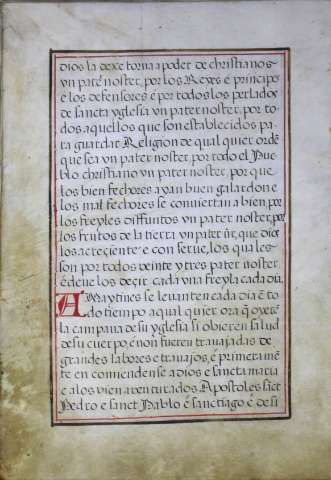 dios la dexe torna a poder de christianos
vn pater noster, por los Reyes é principes
é los defensores é por todos los perlados
de sancta yglesia vn pater noster, por to
dos aquellos que son establecidos pa
ra guardar Religion de qual quier ordē
que sea vn pater noster, por todo el Pue
blo christiano vn pater noster, por que
los bien fechores ayan buen galardon e
los mal fechores se conviertan a bien, por
los freyles diffuntos vn pater noster, por
los frutos de la tierra vn pater nr̄, que dios
los acreciente e conserue, los quales
son por todos veinte y tres pater noster,
é deue los deçir cada vna freyla cada dia,
A Maytines se leuanten cada dia é to
do tiempo a qual quier ora q̄ oyerē
la campana de su yglesia si obieren salud
de su cuerpo, é non fueren trauajadas de
grandes labores e trauajos, é primeramē
te encomiendense a dios e sancta maria
e a los bien auenturados Apostoles sāct
Pedro e sanct Pablo é sanctiago é desi